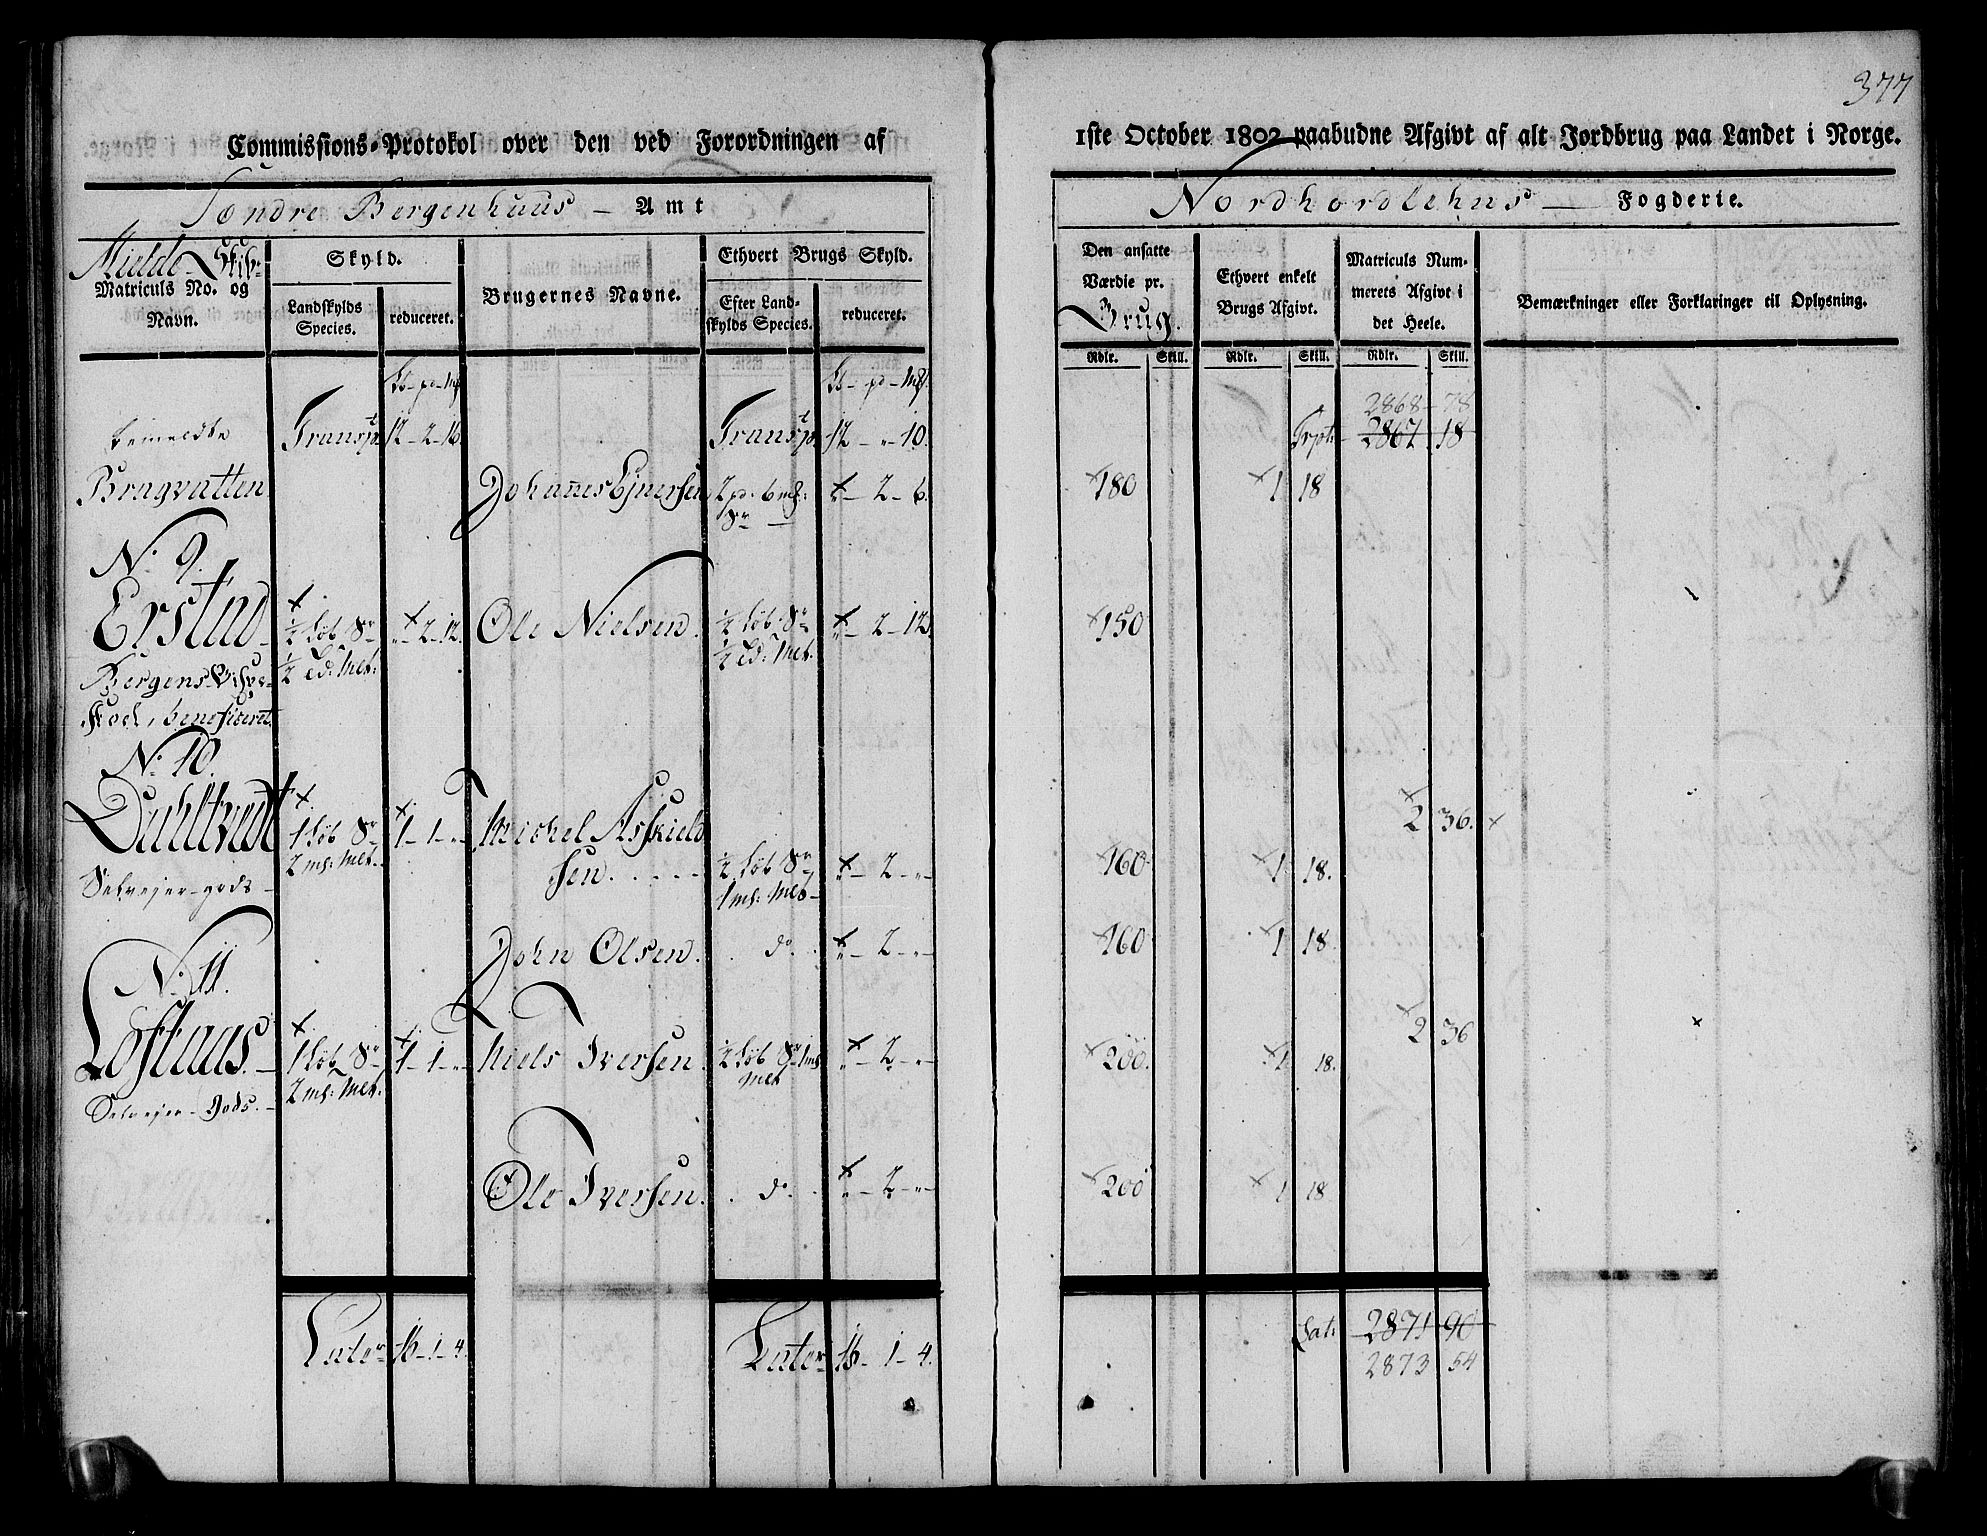 377
Commissions-Protokol over den ved Forordningen af
1ste October 1802 paabudne Afgivt af alt Jordbrug paa Landet i Norge.
Søndre Bergenhuus — Amt
Nordhordlehns — Fogderie.
Mielde Skibr.
Matriculs No. og Navn.
Skyld.
Landskylds Species.
reduceret.
Brugernes Navne.
Ethvert Brugs Skyld.
Efter Landskylds Species.
reduceret.
Den ansatte Værdie pr. Brug.
Ethvert enkelt Brugs Afgivt.
Matriculs Nummerets Afgivt i det Heele.
Bemærkninger eller Forklaringer til Oplysning.
Rdlr. Skill. Rdlr. Skill. Rdlr. Skill.
2868 - 78
bemeldte Transpt 12 - 2 - 16 Transpt 12 - " - 10. Trpt: 2867 18
Bragvatten Johannes Ejnersen 2 pd: 6 mk: Sr — " - 2 - 6. 180 1 18
No: 9.
Erstad ½ Løb Sr " - 2 - 12. Ole Nielsen. ½ Løb Sr " - 2 - 12. 150
½ Td: Mel: ½ Td: Mel:
Bergens
skoel, beneficeret.
No: 10.
1 Løb Sr 1 - 1 - " Michel Askield 2 36.
2 ms: Mel. sen. ½ Løb Sr " - 2 - " 160 1 18.
Selvejer-gods 1 ms: Mel
John Olsen. do. " - 2 - " 160 1 18.
No: 11.
Løftaas. 1 Løb Sr 1 - 1 - " Niels Iversen. ½ Løb Sr 1 ms " - 2 - " 200. 1 18. 2 36
2 ms: Mel. Mel
Selvejer-Gods.
Ole Iversen. do. " - 2 - " 200 1 18
Later 16 - 1 - 4. Later 16 - 1 - 4. Lat: 2871 90
2873 54